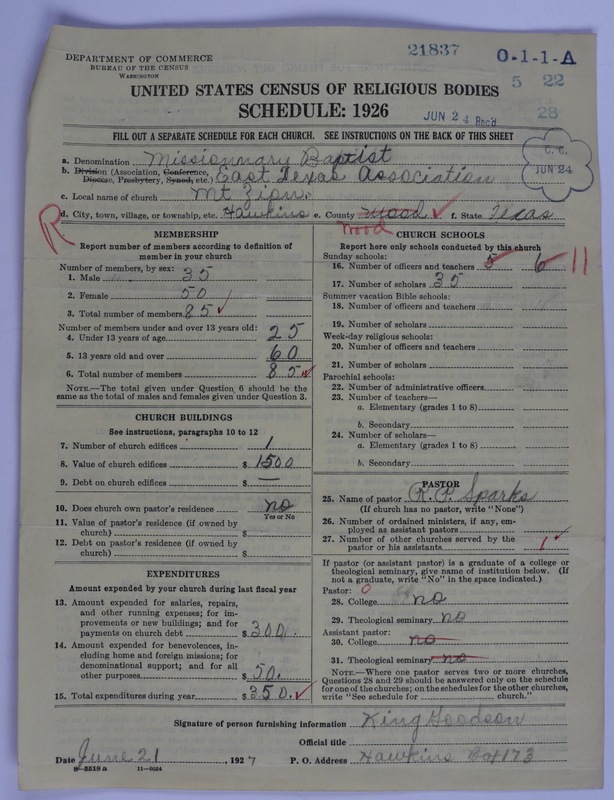 21837 O-1-1-A
DEPARTMENT OF COMMERCE
BUREAU OF THE CENSUS
WASHINGTON
5 22
UNITED STATES CENSUS OF RELIGIOUS BODIES
SCHEDULE: 1926
JUN 24 Rec'd
28
FILL OUT A SEPARATE SCHEDULE FOR EACH CHURCH. SEE INSTRUCTIONS ON THE BACK OF THIS SHEET
C. C.
JUN 24
a. Denomination Missionnary Baptist
b. Division (Association, Conference, Diocese, Presbytery, Synod, etc.) East Texas Association
c. Local name of church Mt Zion.
d. City, town, village, or township, etc. Hawkins e. County Wood f. State Texas
R
Wood
MEMBERSHIP
Report number of members according to definition of member in your church
Number of members, by sex:
1. Male 35
2. Female 50
3. Total number of members 85
Number of members under and over 13 years old:
4. Under 13 years of age 25
5. 13 years old and over 60
6. Total number of members 85
NOTE.—The total given under Question 6 should be the same as the total of males and females given under Question 3.
CHURCH BUILDINGS
See instructions, paragraphs 10 to 12
7. Number of church edifices 1
8. Value of church edifices $ 1500
9. Debt on church edifices $ —
10. Does church own pastor's residence? no
Yes or No
11. Value of pastor's residence (if owned by church) $
12. Debt on pastor's residence (if owned by church) $
EXPENDITURES
Amount expended by your church during last fiscal year
13. Amount expended for salaries, repairs, and other running expenses; for improvements or new buildings; and for payments on church debt $ 300.
14. Amount expended for benevolences, including home and foreign missions; for denominational support; and for all other purposes $ 50.
15. Total expenditures during year $ 350.
CHURCH SCHOOLS
Report here only schools conducted by this church
Sunday schools:
16. Number of officers and teachers 5 6 11
17. Number of scholars 35
Summer vacation Bible schools:
18. Number of officers and teachers
19. Number of scholars
Week-day religious schools:
20. Number of officers and teachers
21. Number of scholars
Parochial schools:
22. Number of administrative officers
23. Number of teachers—
a. Elementary (grades 1 to 8)
b. Secondary
24. Number of scholars—
a. Elementary (grades 1 to 8)
b. Secondary
PASTOR
25. Name of pastor R. P. Sparks
(If church has no pastor, write "None")
26. Number of ordained ministers, if any, employed as assistant pastors
27. Number of other churches served by the pastor or his assistants 1
If pastor (or assistant pastor) is a graduate of a college or theological seminary, give name of institution below. (If not a graduate, write "No" in the space indicated.)
Pastor: 0
28. College no
29. Theological seminary no
Assistant pastor:
30. College no
31. Theological seminary no
NOTE.—Where one pastor serves two or more churches, Questions 28 and 29 should be answered only on the schedule for one of the churches; on the schedules for the other churches, write "See schedule for church."
Signature of person furnishing information King Goodson
Official title
Date June 21, 1927 P. O. Address Hawkins Box 173
8-5518 a 11-9024